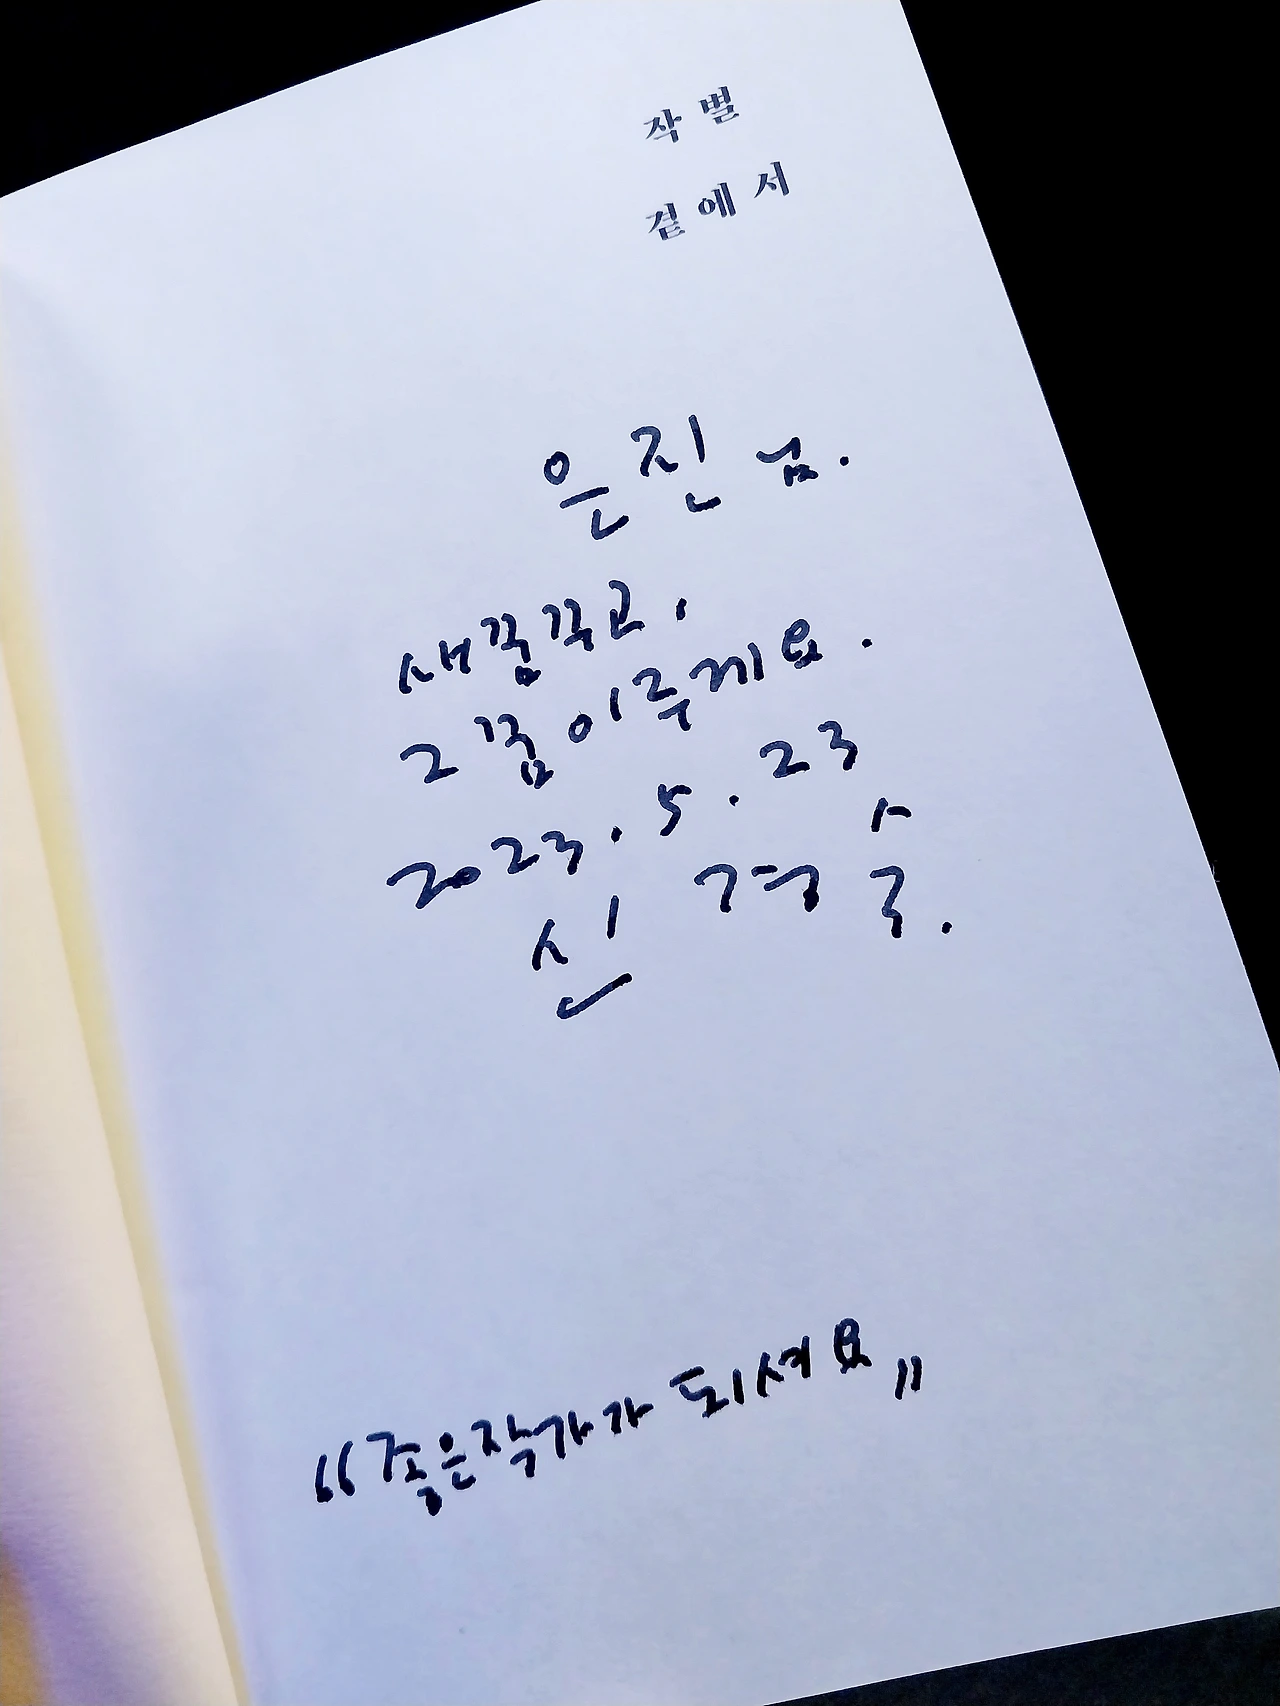 작별
곁에서
은진 님.
새꿈꾸고,
그 꿈이루게요.
2023. 5. 23
신 경숙.
"좋은작가가 되세요"